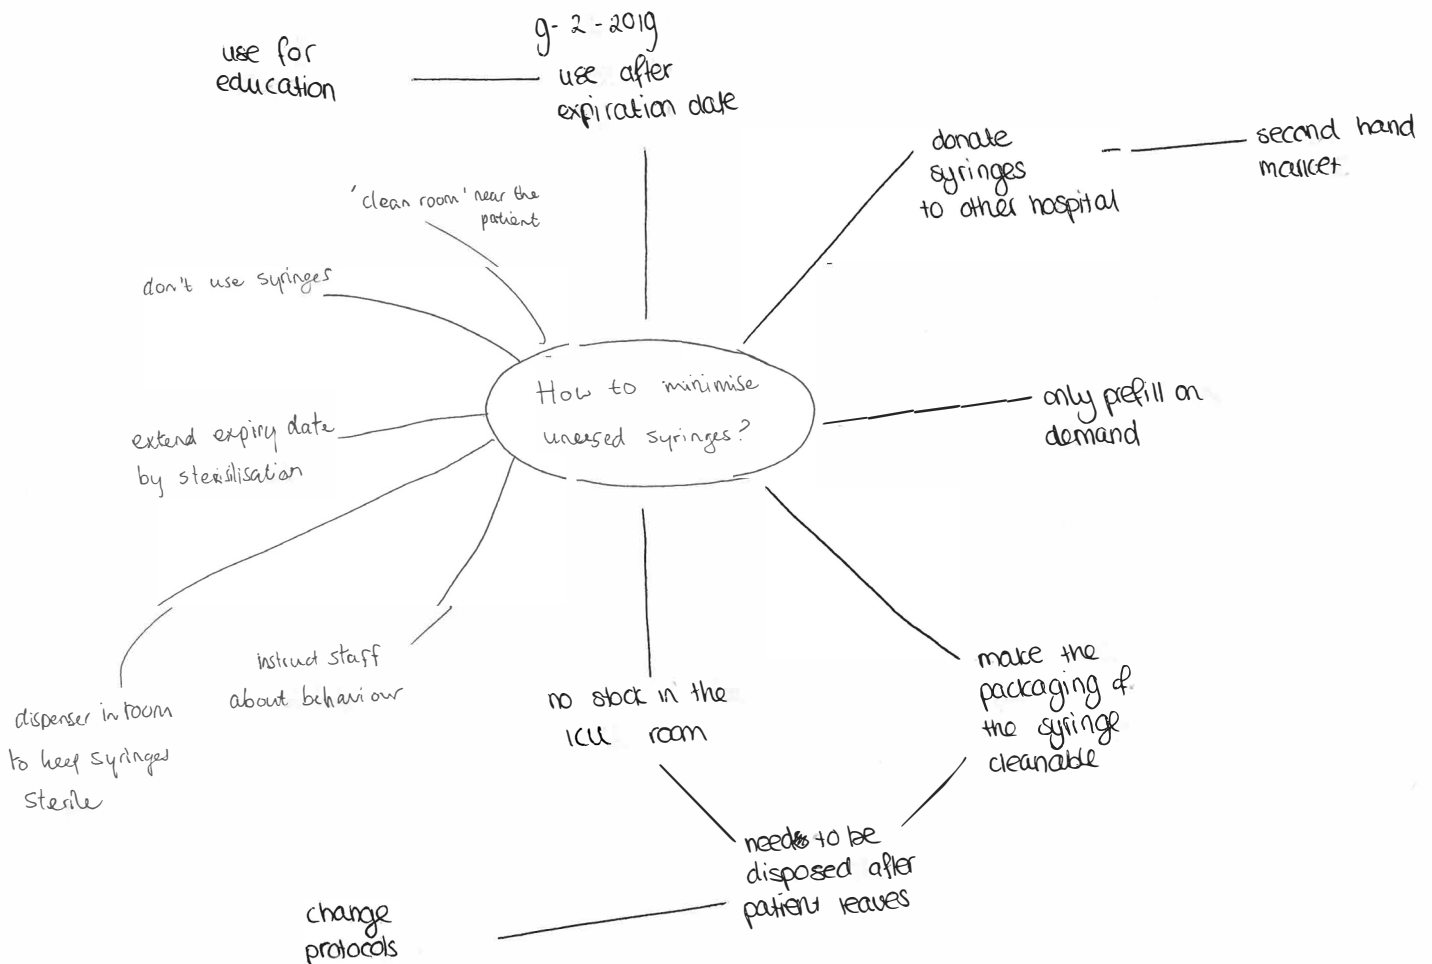 9-2-2019
use for
education
use after
expiration date
donate
syringes
to other hospital
second hand
market
'clean room' near the
patient
don't use syringes
How to minimise
unused syringes?
only prefill on
demand
extend expiry date
by sterilisation
instruct staff
about behaviour
dispenser in room
to keep syringes
sterile
no stock in the
ICU room
make the
packaging of
the syringe
cleanable
needs to be
disposed after
patient leaves
change
protocols